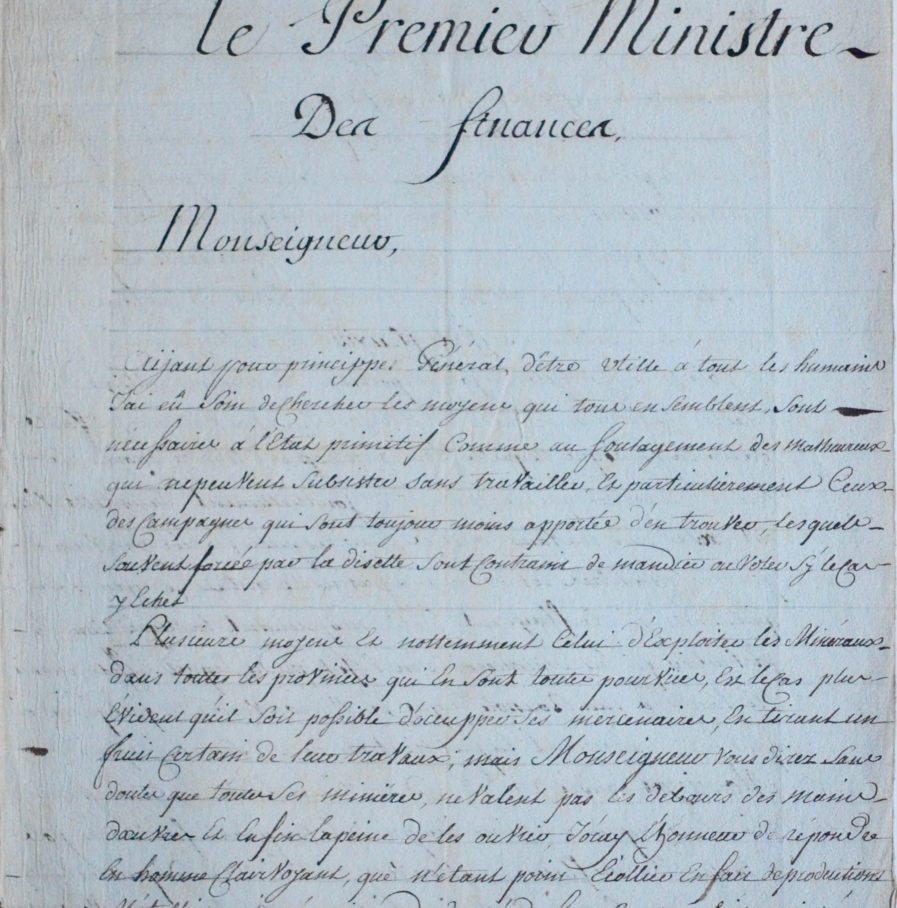 le Premier Ministre
Des finances,
Monseigneur,
Ayant pour princippes Général, d'être utille à tout les humains
J'ai eû soin de chercher les moyens qui tous ensemblent, sont
nécessaires à l'Etat primitif Comme au soulagement des malheureux
qui ne peuvent subsister sans travailler, et particulièrement Ceux
des Campagnes qui sont toujours moins apportée d'en trouver, lesquels
souvent forcée par la disette sont Contrains de mandier ou voler sÿ le Cas
y Echet
Plusieurs moyens Et nottemment Celui d'Exploiter les Minéraux
dans toutes les provinces qui En sont toutes pourvües, Est le Cas plus
Evident qu'il soit possible d'occupper ses mercenaires, En tirant un
fruit Certain de leurs travaux; mais Monseigneur vous direz sans
doutes que toutes ses minières, ne valent pas les debours des mains
d'oeuvres Et Enfin la peine de les ouvrir, J'oray l'honneur de répondre
En homme Clairvoyant, que n'étant point Ecollier En fait de productions